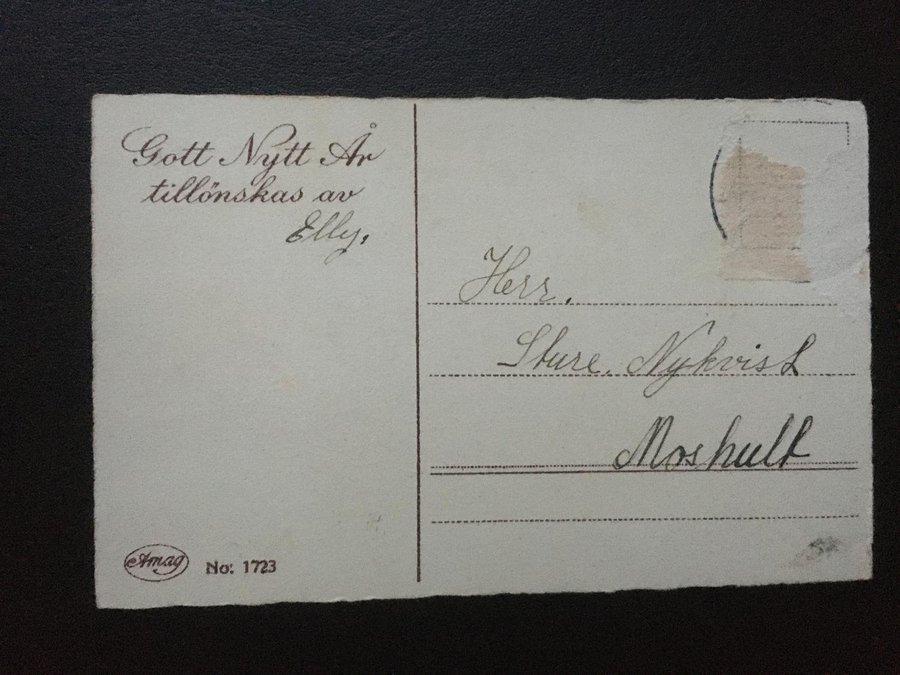 Gott Nytt År
tillönskas av
Elly.
Herr.
Sture. Nykvist
Moshult
Amag
No: 1723